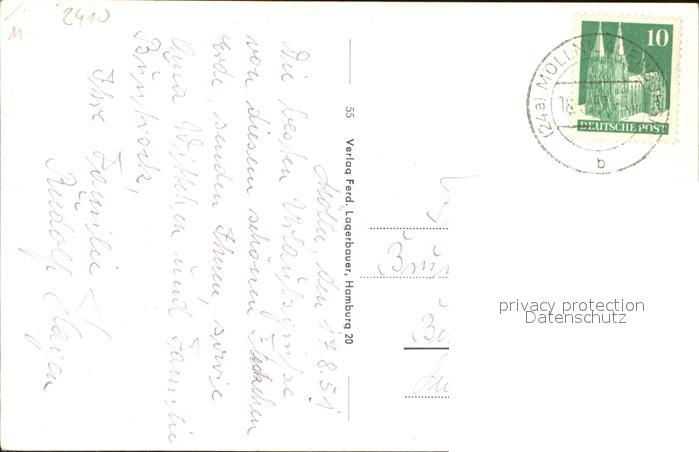 2410
M
Mölln, den 17.8.51
Die besten Urlaubsgrüße
von diesem schönen Fleckchen
Erde, senden Ihnen, sowie
Oma Witthen und Familie
Ihre Familie
Rudolf Hagen
55 Verlag Ferd. Lagerbauer, Hamburg 20
10
DEUTSCHE POST
(24a) MÖLLN
18
b
privacy protection
Datenschutz